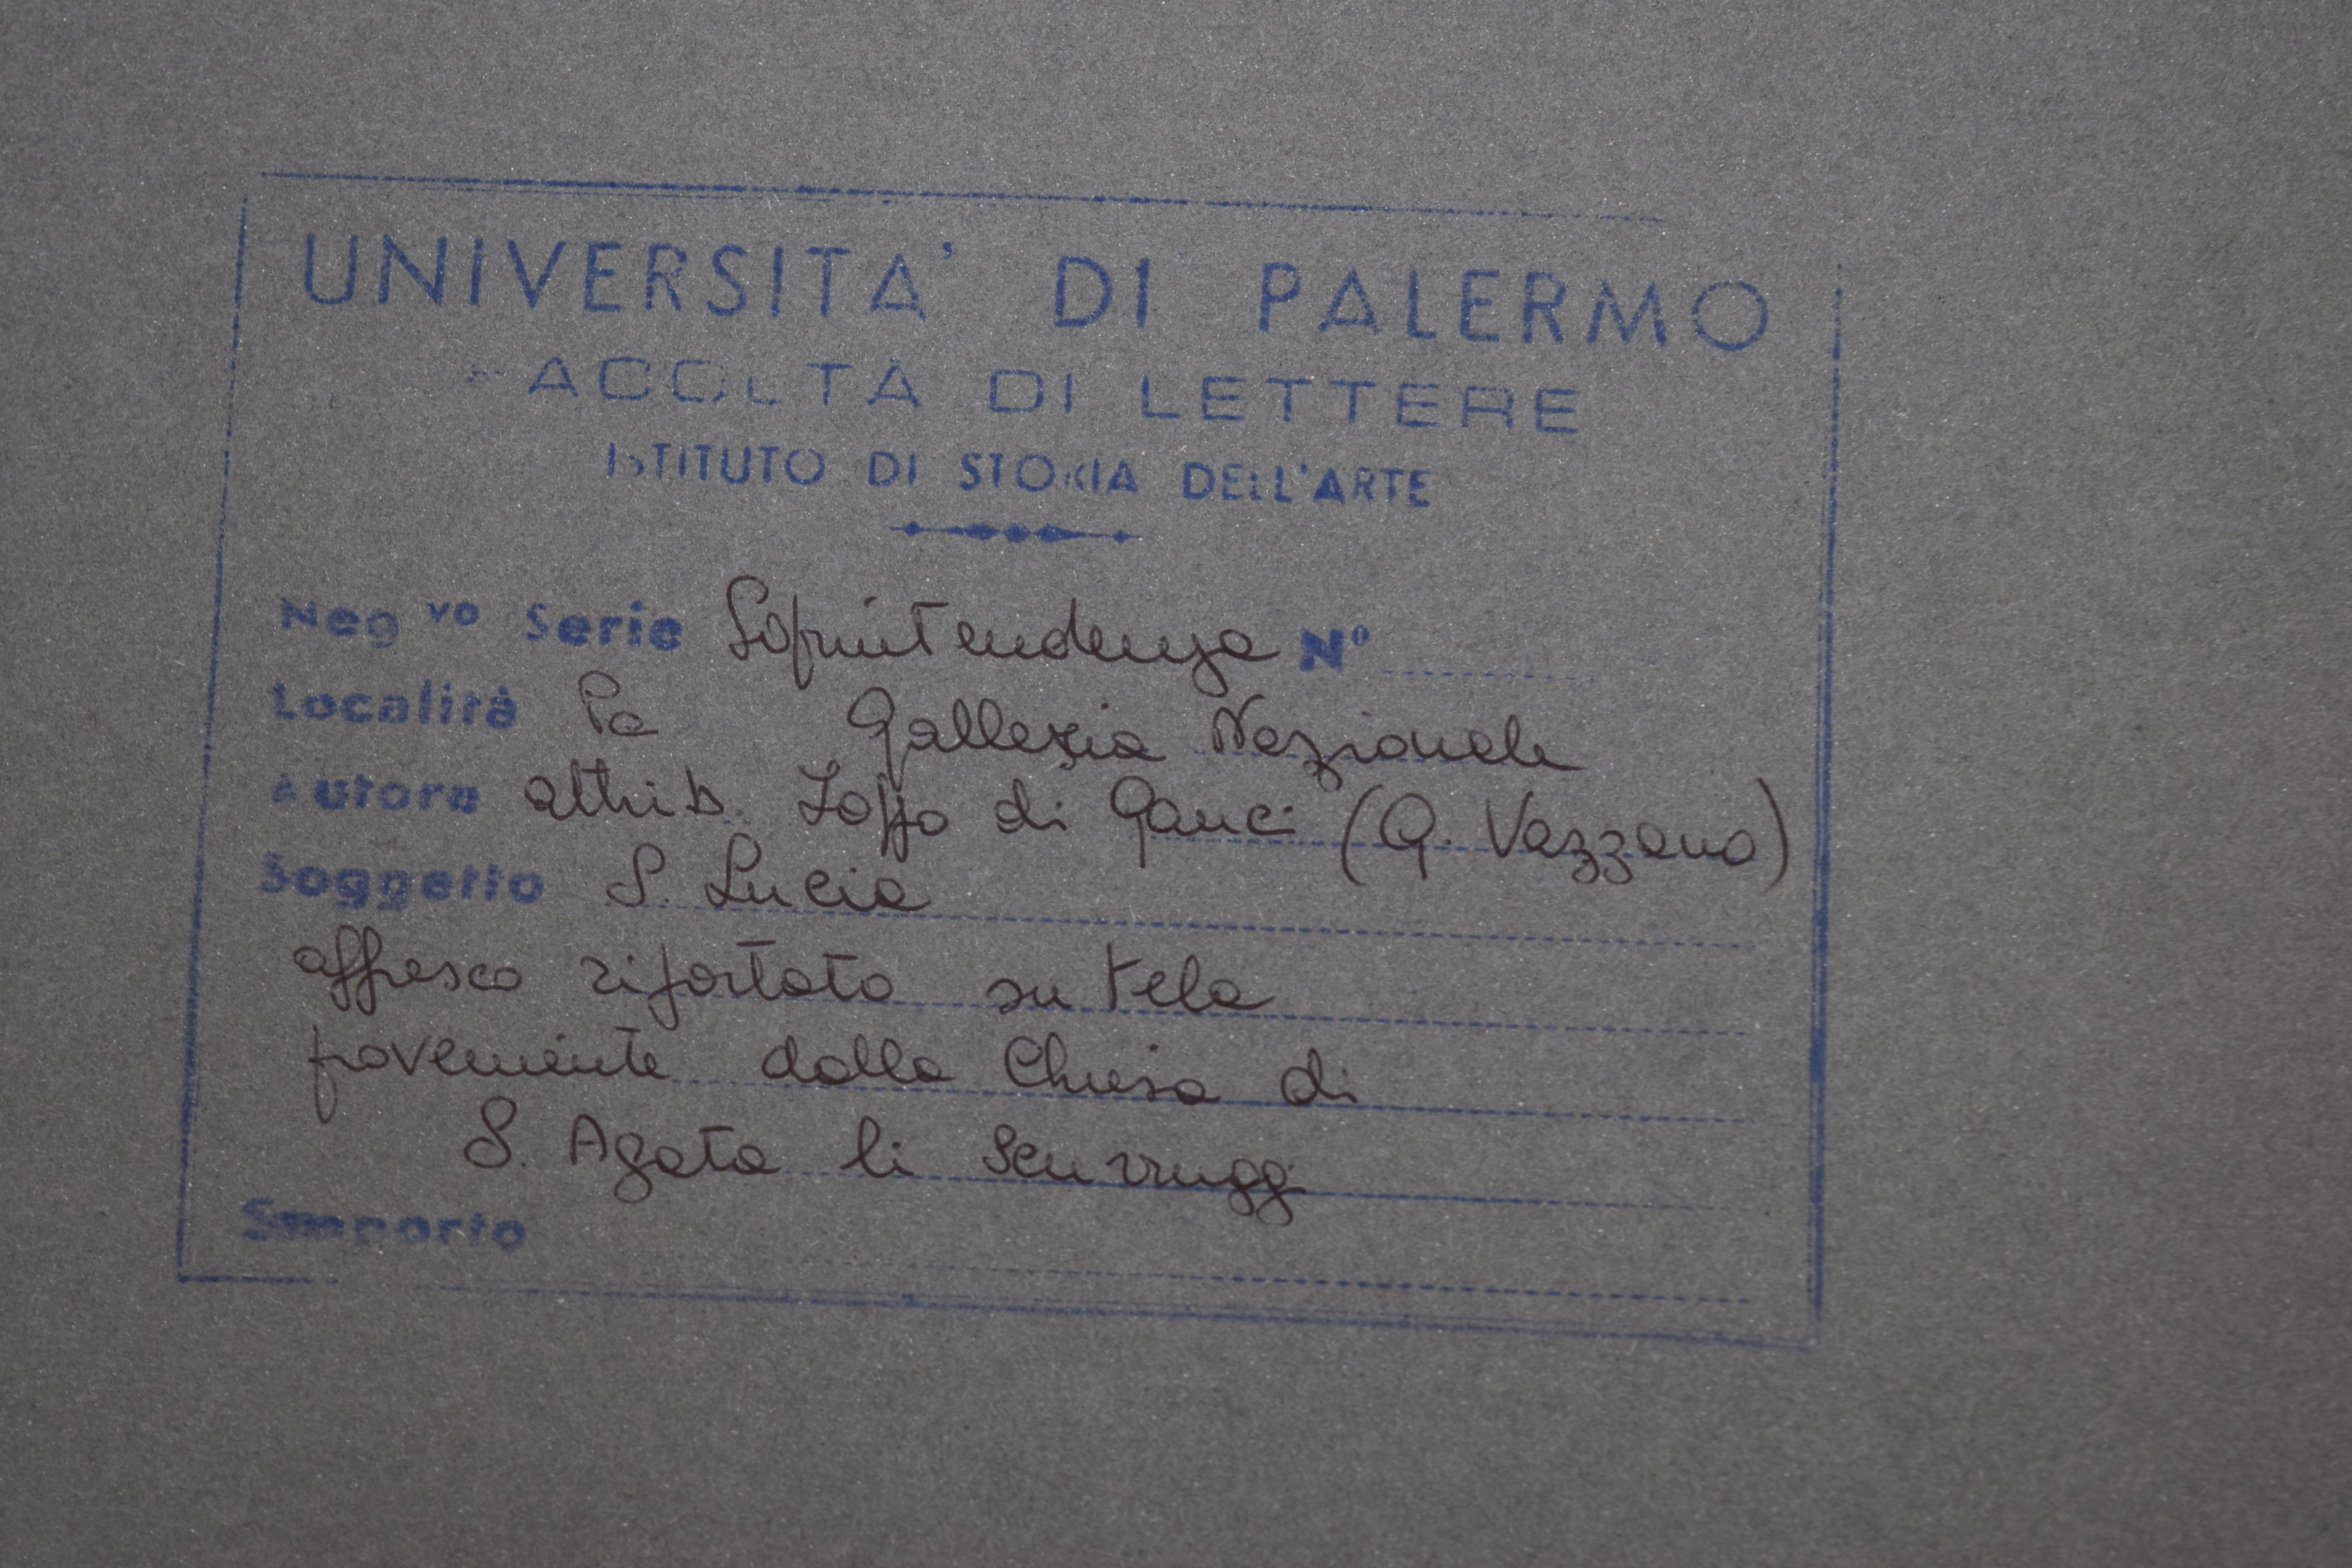 UNIVERSITA' DI PALERMO
FACOLTA DI LETTERE
ISTITUTO DI STORIA DELL'ARTE
Neg.vo Serie Soprintendenza N°
Località Pa Galleria Nazionale
Autore attrib. Zoppo di Ganci (G. Vazzano)
Soggetto S. Lucia
affresco riportato su tela
proveniente dalla Chiesa di
S. Agata li Scurruggi